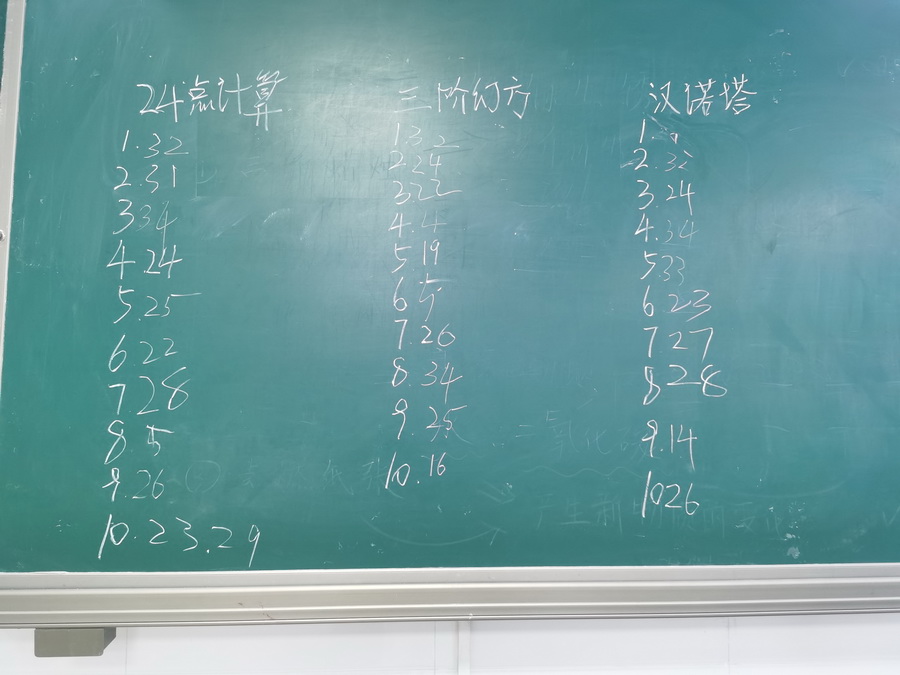 24点计算
1.32
2.31
3 34
4.24
5.25
6.22
7 28
8.5
9.26
10.23.29
三阶幻方
1 32
2.24
3 22
4.4
5 19
6 5
7.26
8.34
9.25
10.16
汉诺塔
1.
2.32
3.24
4.34
5.33
6.23
7 27
8 28
9.14
10 26